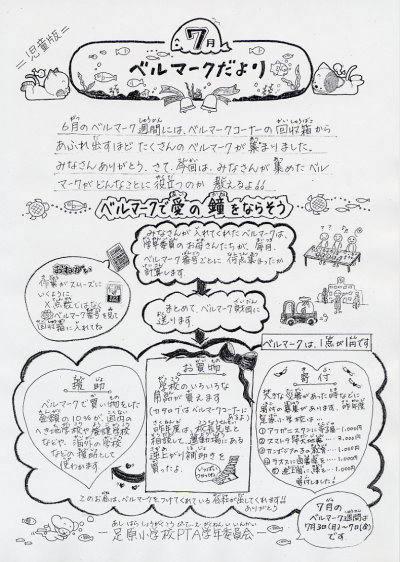 =児童版=
7月
ベルマークだより
6月のベルマーク週間には、ベルマークコーナーの回収箱から
あふれ出すほど たくさんのベルマークが集まりました。
みなさんありがとう。さて、今回は、みなさんが集めたベル
マークがどんなことに役立つのか 教えるよ!!
ベルマークで愛の鐘をならそう
みなさんが入れてくれたベルマークは、
のお母さんたちが、毎月、
ベルマーク番号ごとに 何点集まったか
計算します。
おねがい
作業がスムーズに
いくように
×点数ではなく
ベルマーク番号を見て
回収箱に入れてね
まとめて、ベルマーク財団に
送ります。
ベルマークは、1点が1円です
援助
ベルマークで買い物をした
金額の10%が、国内の
へき地学校や養護学校
などや、海外の学校
などの援助として
使われます。
お買物
学校のいろいろな
用品が買えます
(カタログはベルマークコーナーに
あるよ)
昨年度は、校長先生と
相談して、運動場にある
を
買ったよ。
寄付
大きな災害があった時などに
寄付の募集があります。昨年度
足原小学校は…
①アフガニスタンに
②スマトラ
③カンボジアの
④ラオスに
⑤
に寄付しました!
このお金は、ベルマークをつけてくれている会社が出してくれます!!
ありがとう
あしはらしょうがっこうぴーてぃーえーがくねんいいんかい
―足原小学校PTA学年委員会―
7月の
ベルマーク週間は
7月3日(月)～7日(金)
です